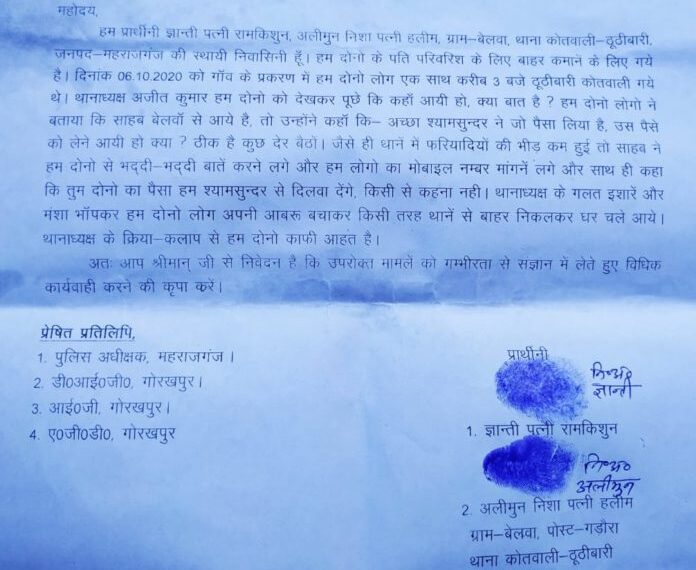 महोदय,
हम प्रार्थीनी ज्ञान्ती पत्नी रामकिशुन, अलीमुन निशा पत्नी हलीम, ग्राम-बेलवा, थाना कोतवाली-ठूठीबारी,
जनपद-महराजगंज की स्थायी निवासिनी हूँ। हम दोनो के पति परिवरिश के लिए बाहर कमाने के लिए गये
है। दिनांक 06.10.2020 को गाँव के प्रकरण में हम दोनो लोग एक साथ करीब 3 बजे ठूठीबारी कोतवाली गये
थे। थानाध्यक्ष अजीत कुमार हम दोनो को देखकर पूछे कि कहाँ आयी हो, क्या बात है ? हम दोनो लोगो ने
बताया कि साहब बेलवाँ से आये है, तो उन्होंने कहाँ कि- अच्छा श्यामसुन्दर ने जो पैसा लिया है, उस पैसे
को लेने आयी हो क्या ? ठीक है कुछ देर बैठो। जैसे ही थानें में फरियादियों की भीड़ कम हुई तो साहब ने
हम दोनो से भद्दी-भद्दी बातें करने लगे और हम लोगो का मोबाइल नम्बर मांगनें लगे और साथ ही कहा
कि तुम दोनो का पैसा हम श्यामसुन्दर से दिलवा देंगे, किसी से कहना नही। थानाध्यक्ष के गलत इशारें और
मंशा भाँपकर हम दोनो लोग अपनी आबरू बचाकर किसी तरह थानें से बाहर निकलकर घर चले आये।
थानाध्यक्ष के क्रिया-कलाप से हम दोनो काफी आहत है।
अतः आप श्रीमान् जी से निवेदन है कि उपरोक्त मामलें को गम्भीरता से सज्ञान में लेते हुए विधिक
कार्यवाही करने की कृपा करें।
प्रेषित प्रतिलिपि,
1. पुलिस अधीक्षक, महराजगंज।
2. डी0आई0जी0, गोरखपुर।
3. आई0जी, गोरखपुर।
4. ए0जी0डी0, गोरखपुर
प्रार्थीनी
नि०अ०
ज्ञान्ती
1. ज्ञान्ती पत्नी रामकिशुन
नि०अ०
अलीमुन
2. अलीमुन निशा पत्नी हलीम
ग्राम-बेलवा, पोस्ट-गडौरा
थाना कोतवाली-ठूठीबारी